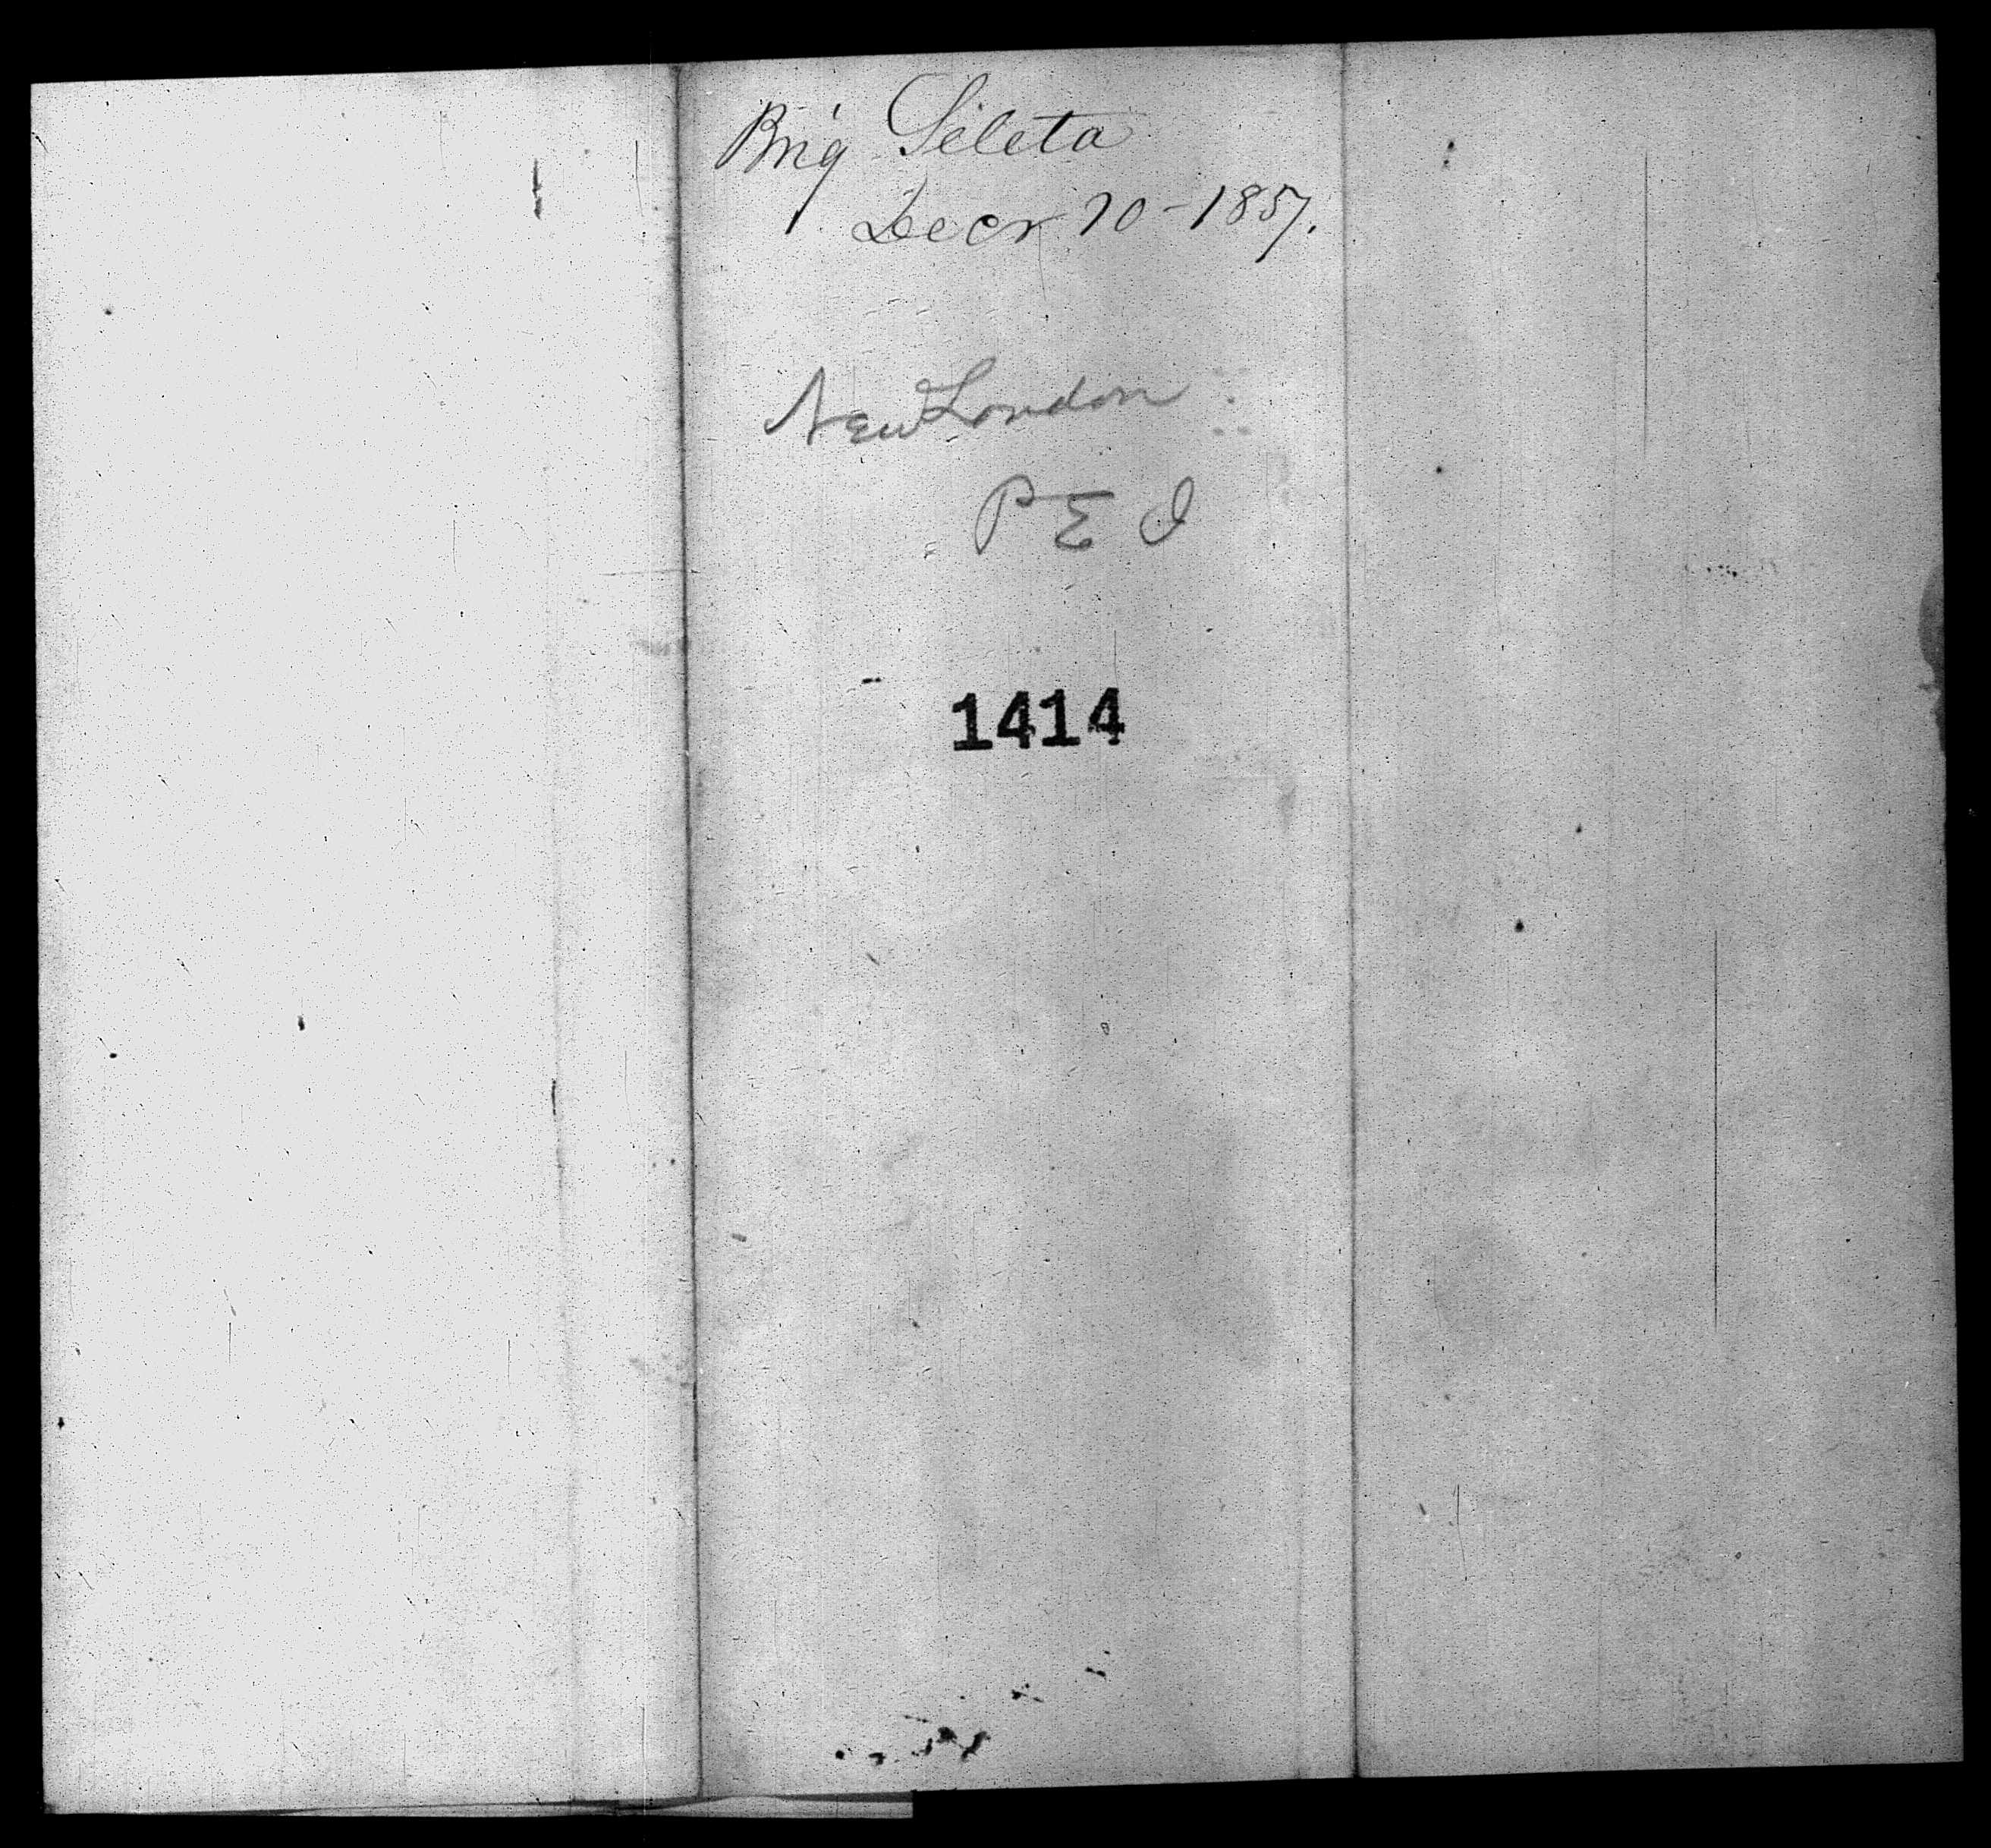 Brig Seleta
Decr 10 - 1857.
New London
P E I
1414